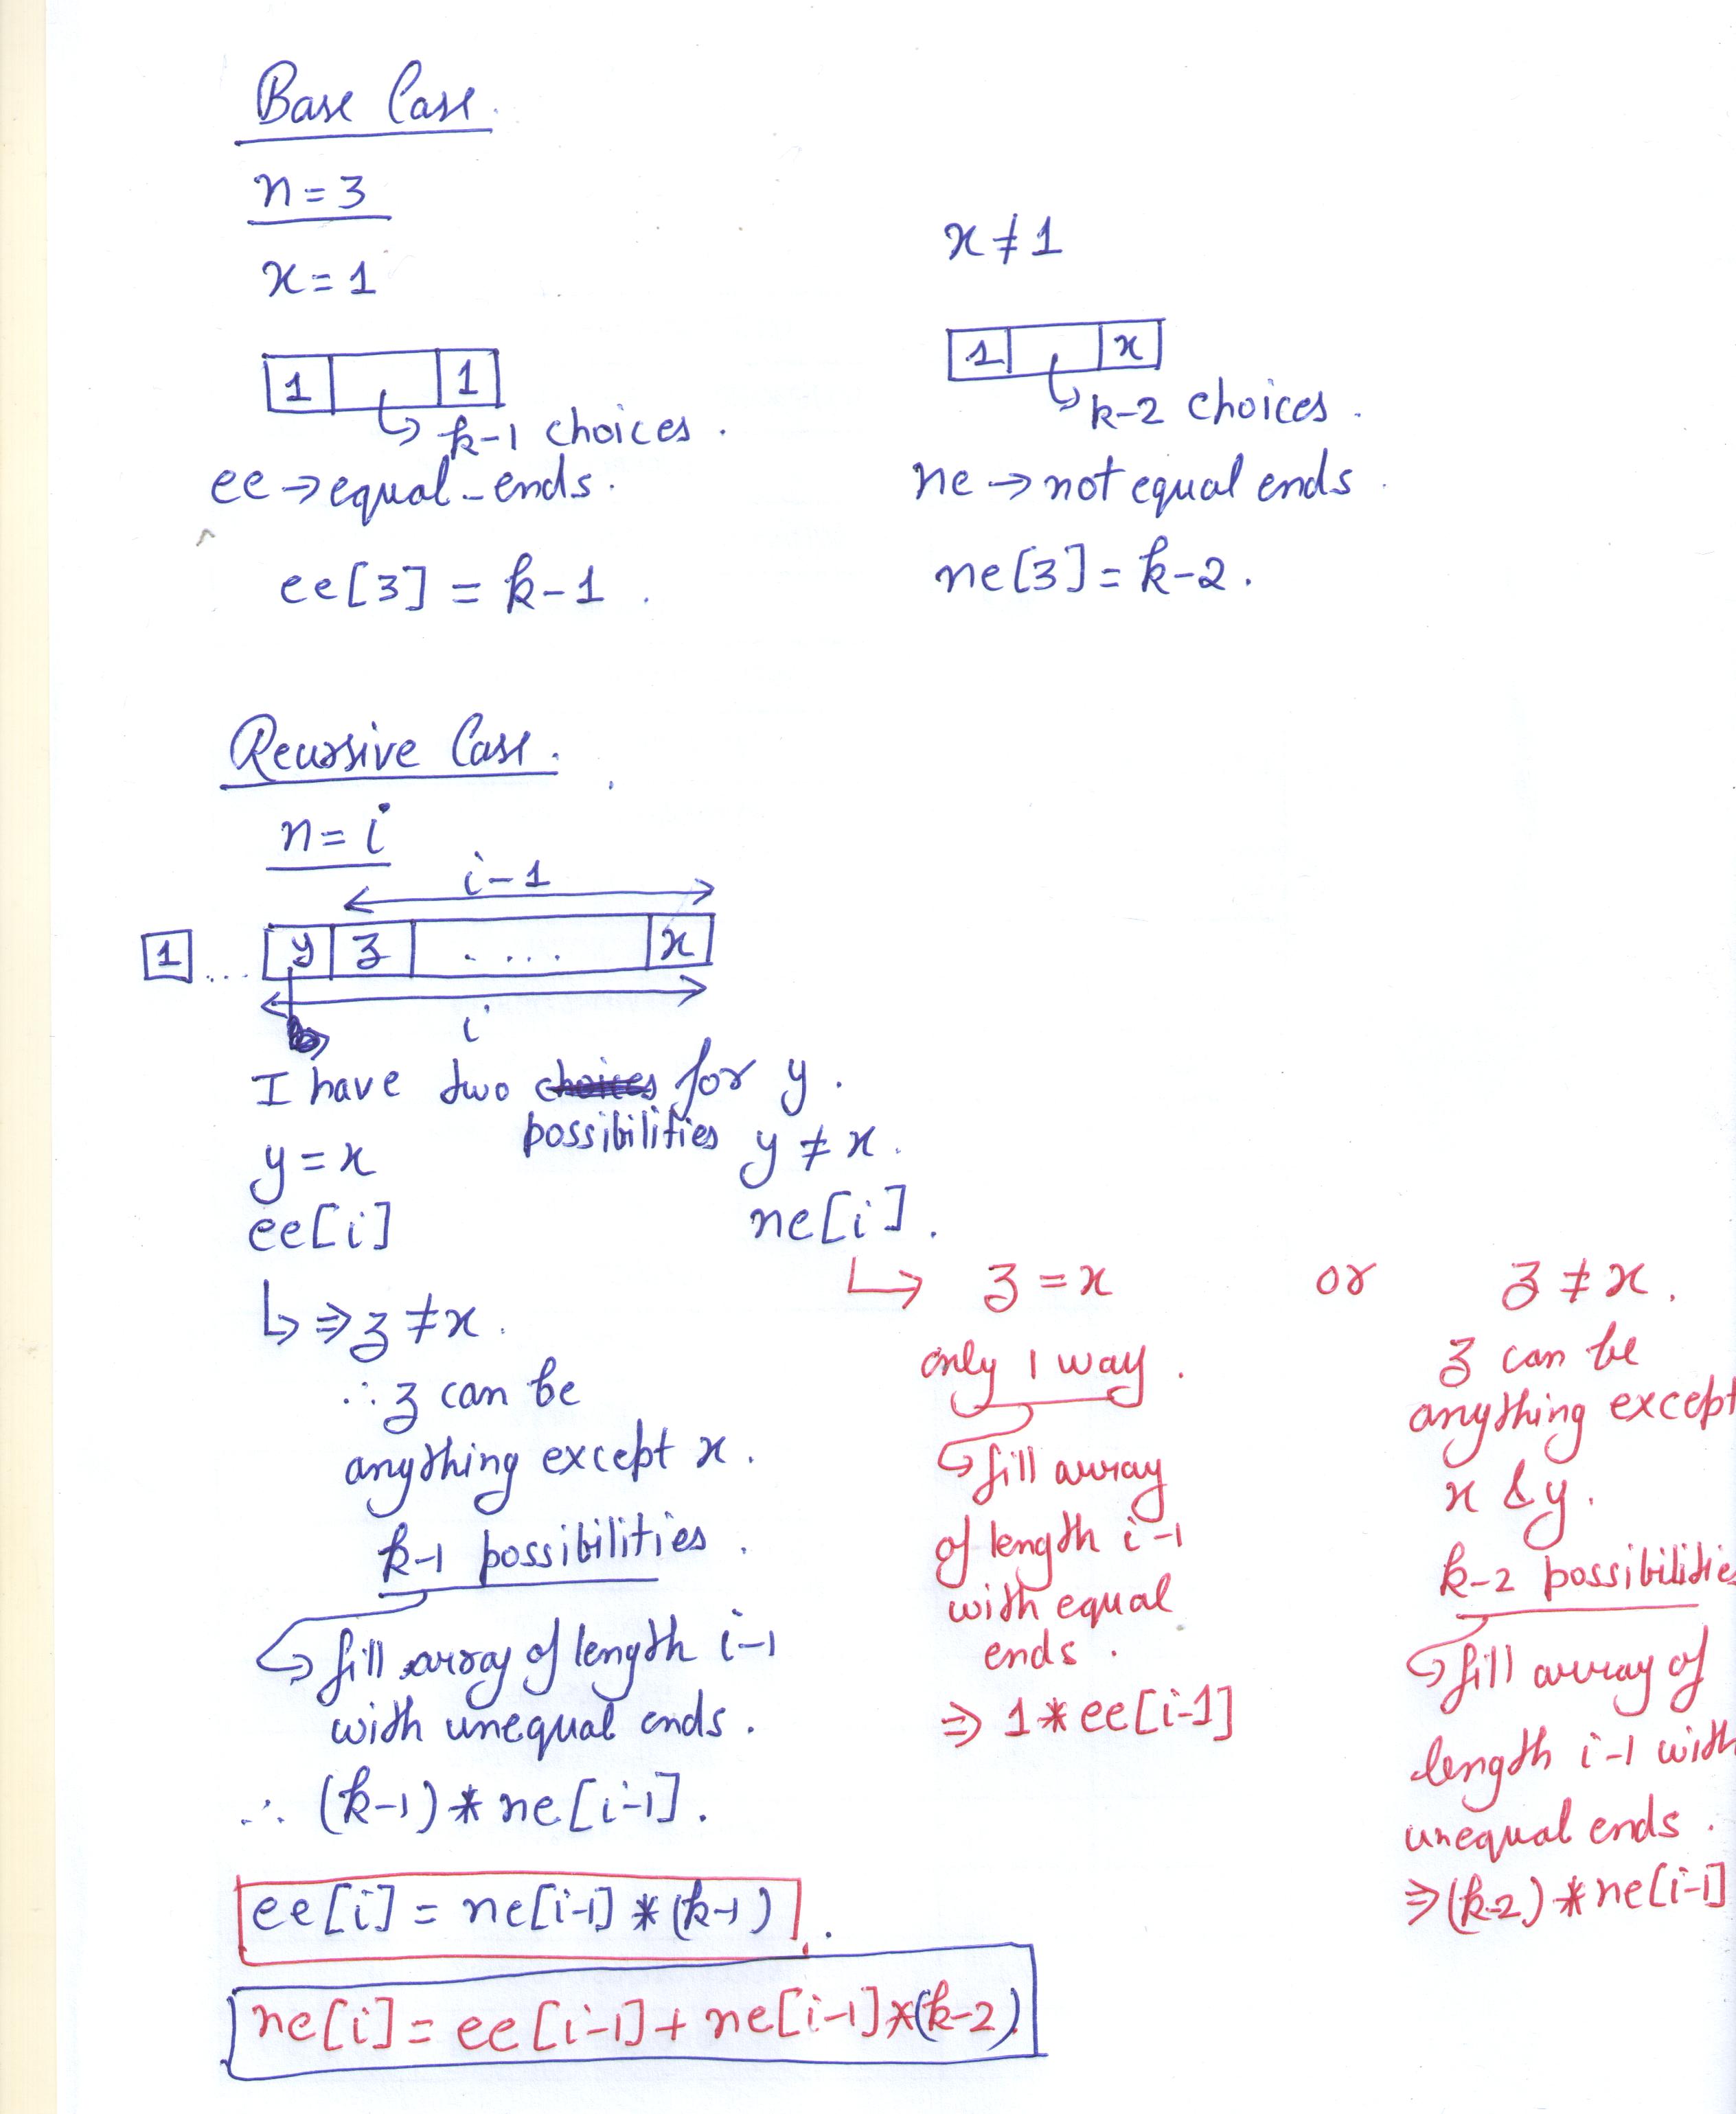 Base Case.
n = 3
x = 1
1 1
k-1 choices.
ee → equal-ends.
ee[3] = k-1.
x ≠ 1
1 x
k-2 choices.
ne → not equal ends.
ne[3] = k-2.
Recursive Case.
n = i
i-1
1 ... y z .... x
i
I have two choices for y.
possibilities
y = x
ee[i]
↳ ⇒ z ≠ x.
∴ z can be
anything except x.
k-1 possibilities.
↪ fill array of length i-1
with unequal ends.
∴ (k-1) * ne[i-1].
y ≠ x.
ne[i].
↳ z = x or z ≠ x.
only 1 way.
↪ fill array
of length i-1
with equal
ends.
⇒ 1 * ee[i-1]
z can be
anything except
x & y.
k-2 possibilitie
↪ fill array of
length i-1 with
unequal ends.
⇒ (k-2) * ne[i-1]
ee[i] = ne[i-1] * (k-1).
ne[i] = ee[i-1] + ne[i-1] * (k-2)